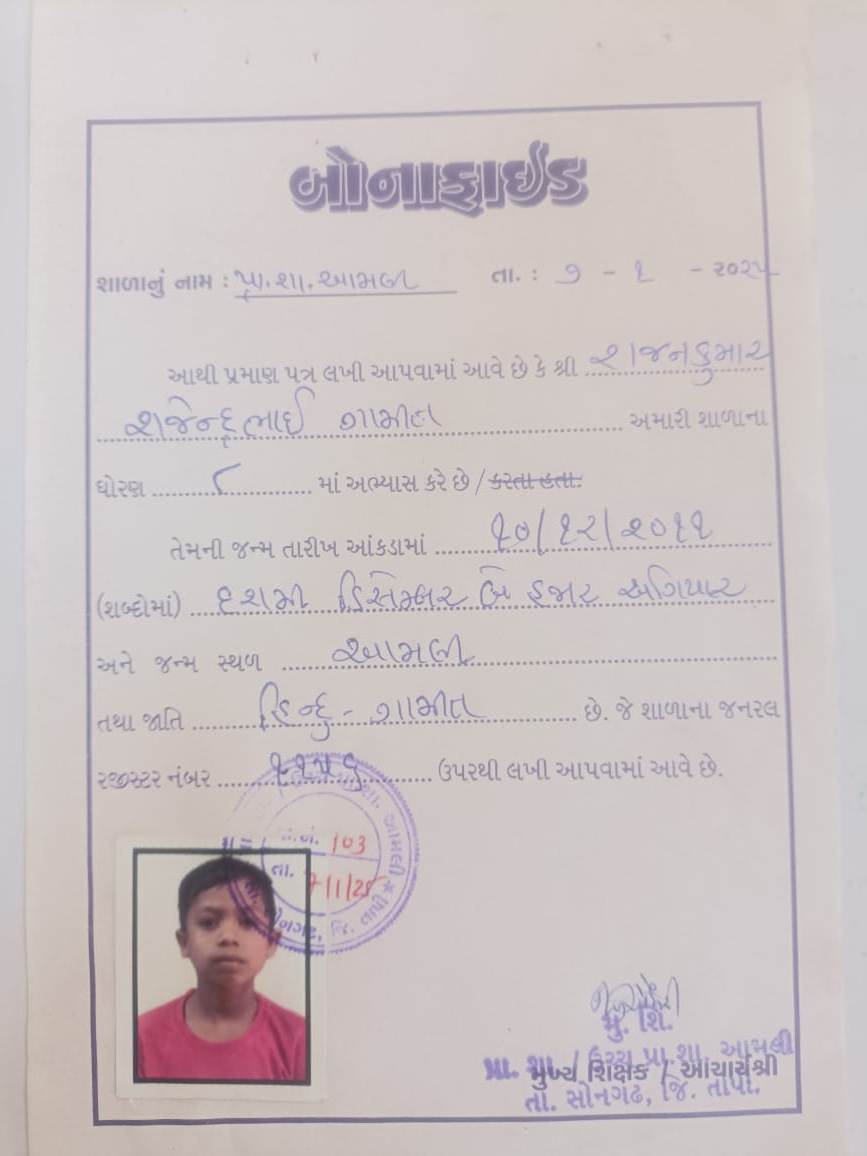 બોનાફાઈડ
શાળાનું નામ : પ્રા.શા. આમલી તા. : ૭ - ૧ - ૨૦૨૫
આથી પ્રમાણ પત્ર લખી આપવામાં આવે છે કે શ્રી રાજનકુમાર
રાજેન્દ્રભાઈ ગામીત અમારી શાળાના
ધોરણ ૮ માં અભ્યાસ કરે છે / કરતા હતા.
તેમની જન્મ તારીખ આંકડામાં ૧૦/૧૨/૨૦૧૧
(શબ્દોમાં) દશમી ડિસેમ્બર બે હજાર અગિયાર
અને જન્મ સ્થળ આમલી
તથા જાતિ હિન્દુ - ગામીત છે. જે શાળાના જનરલ
રજીસ્ટર નંબર ૧૧૫૬ ઉપરથી લખી આપવામાં આવે છે.
જા.નં. 103
તા. 7/1/25
શા. આમલી * તાપી
સોનગઢ, જિ.
મુ. શિ.
પ્રા. શા. / ઉચ્ચ પ્રા. શા. આમલી
મુખ્ય શિક્ષક / આચાર્યશ્રી
તા. સોનગઢ, જિ. તાપી.